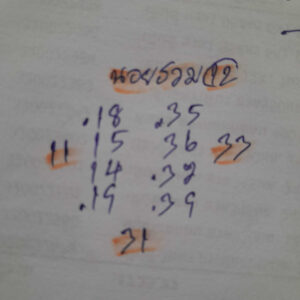 นอยรวม 12
.18 .35
11 15 36 33
14 .32
.19 .39
31